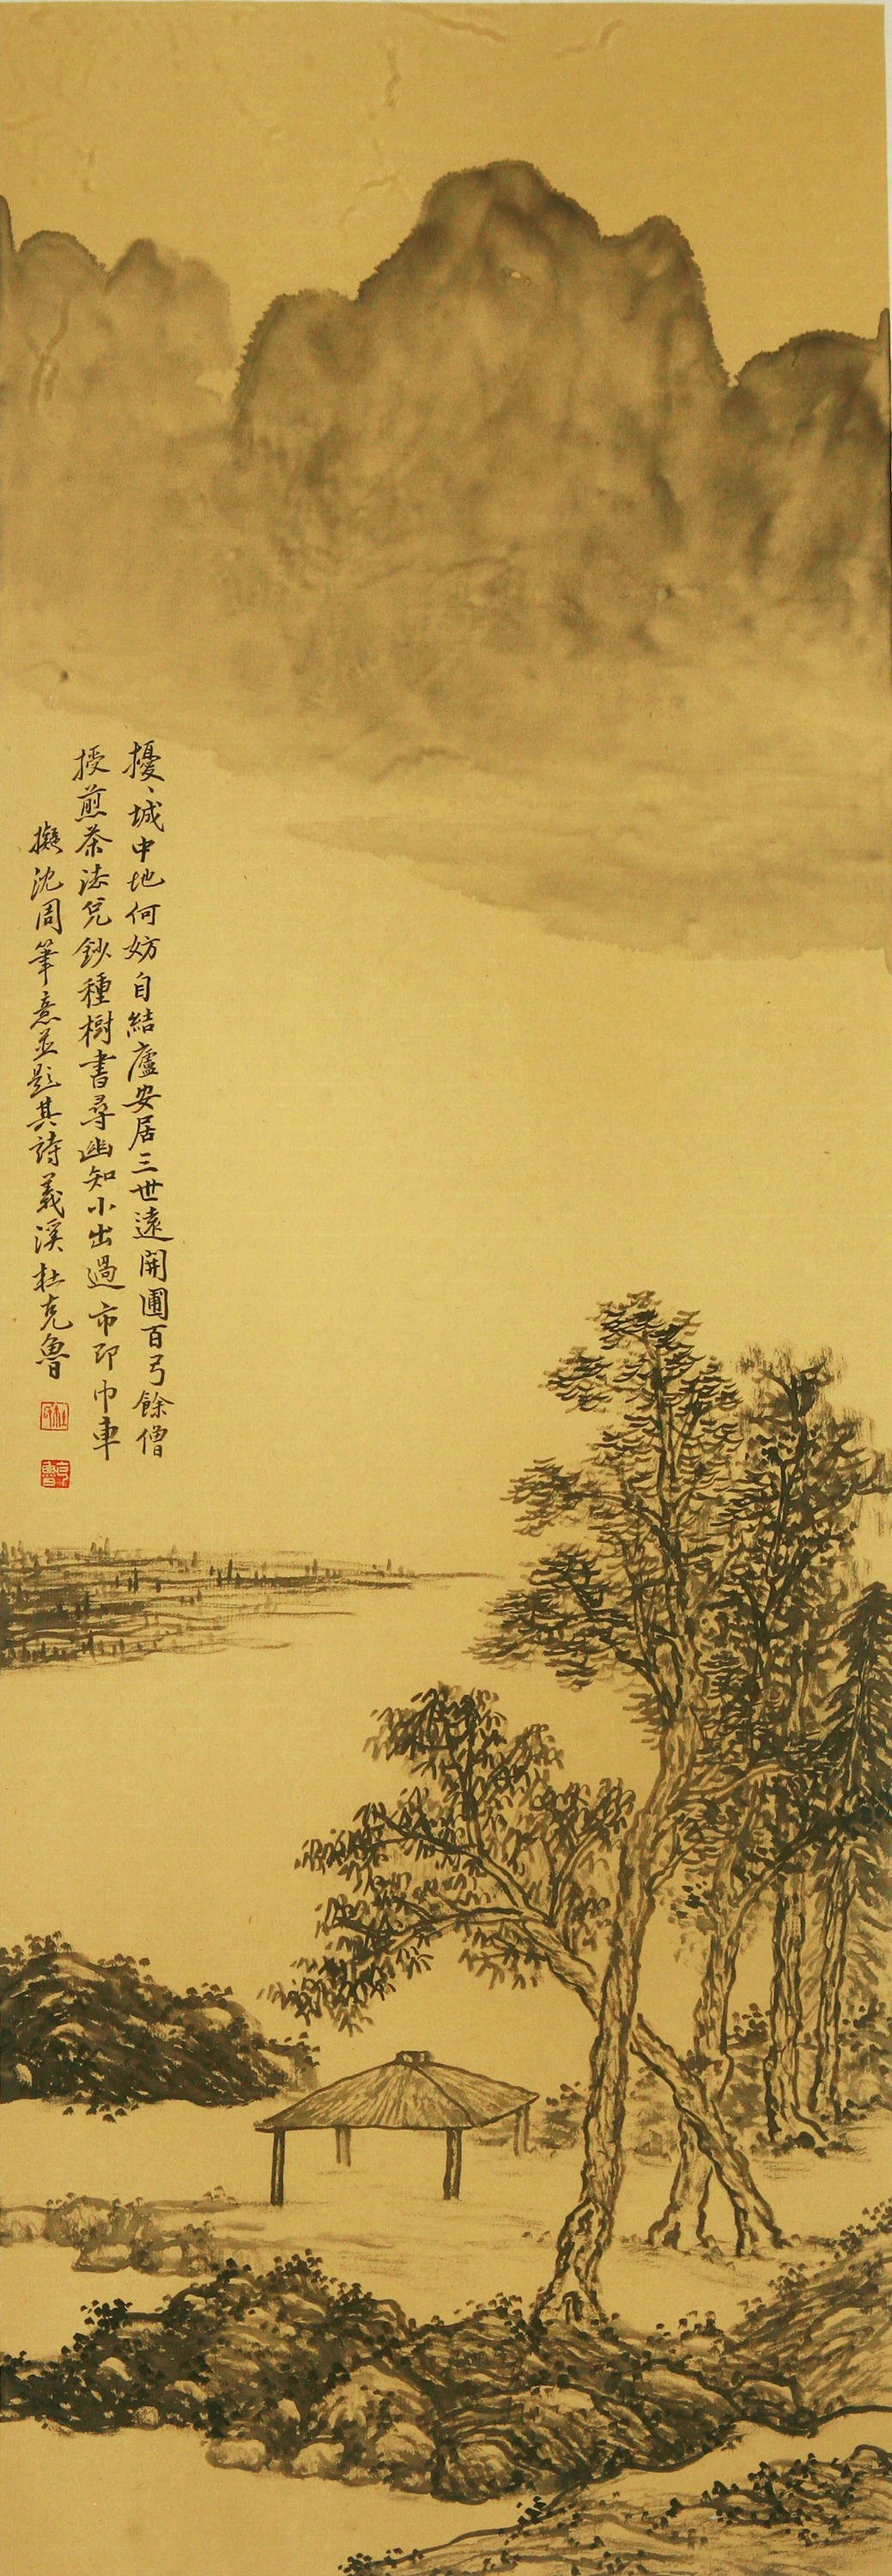 擾、城中地何妨自結廬安居三世遠開圃百弓餘僧
授煎茶法兒鈔種樹書尋幽知小出過市即巾車
擬沈周筆意並題其詩義溪杜克魯